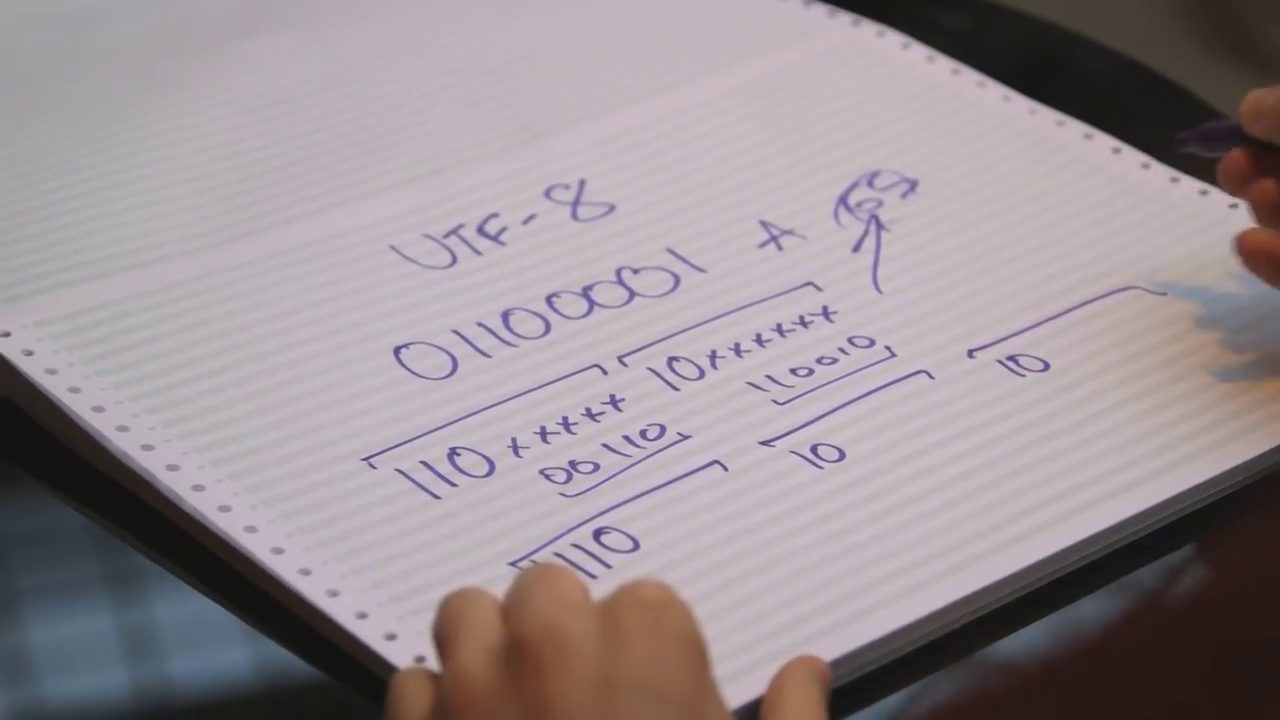 UTF-8
01100001 A 65
110xxxxx 10xxxxxx
00110 110010
110 10 10